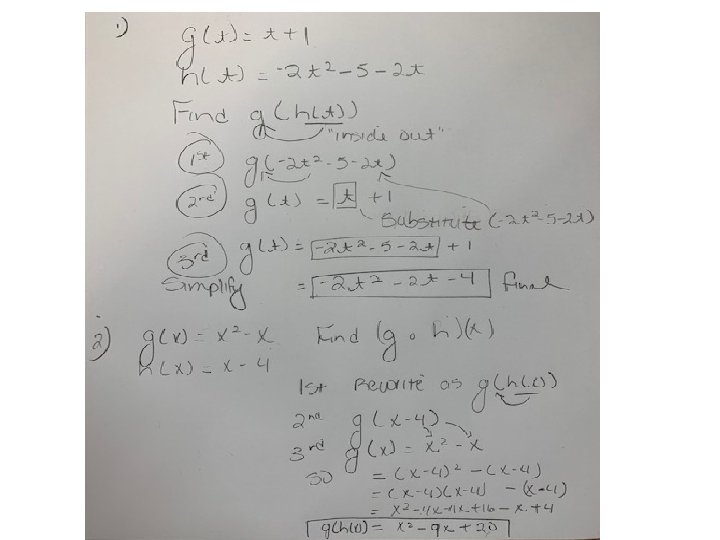 1)
g(t) = t + 1
h(t) = -2t² - 5 - 2t
Find g(h(t))
"inside out"
1st g(-2t² - 5 - 2t)
2nd g(t) = t + 1
Substitute (-2t² - 5 - 2t)
3rd g(t) = -2t² - 5 - 2t + 1
Simplify = -2t² - 2t - 4 final
2) g(x) = x² - x Find (g ∘ h)(x)
h(x) = x - 4
1st Rewrite as g(h(x))
2nd g(x-4)
3rd g(x) = x² - x
SO = (x-4)² - (x-4)
= (x-4)(x-4) - (x-4)
= x² - 4x - 4x + 16 - x + 4
g(h(x)) = x² - 9x + 20